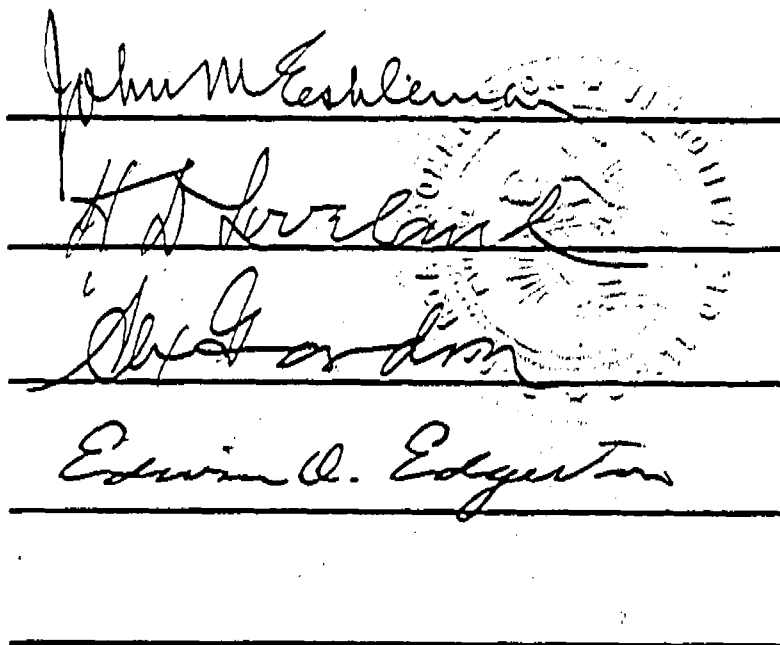 John M Eshleman
H D Loveland
Alex Gordon
Edwin O. Edgerton